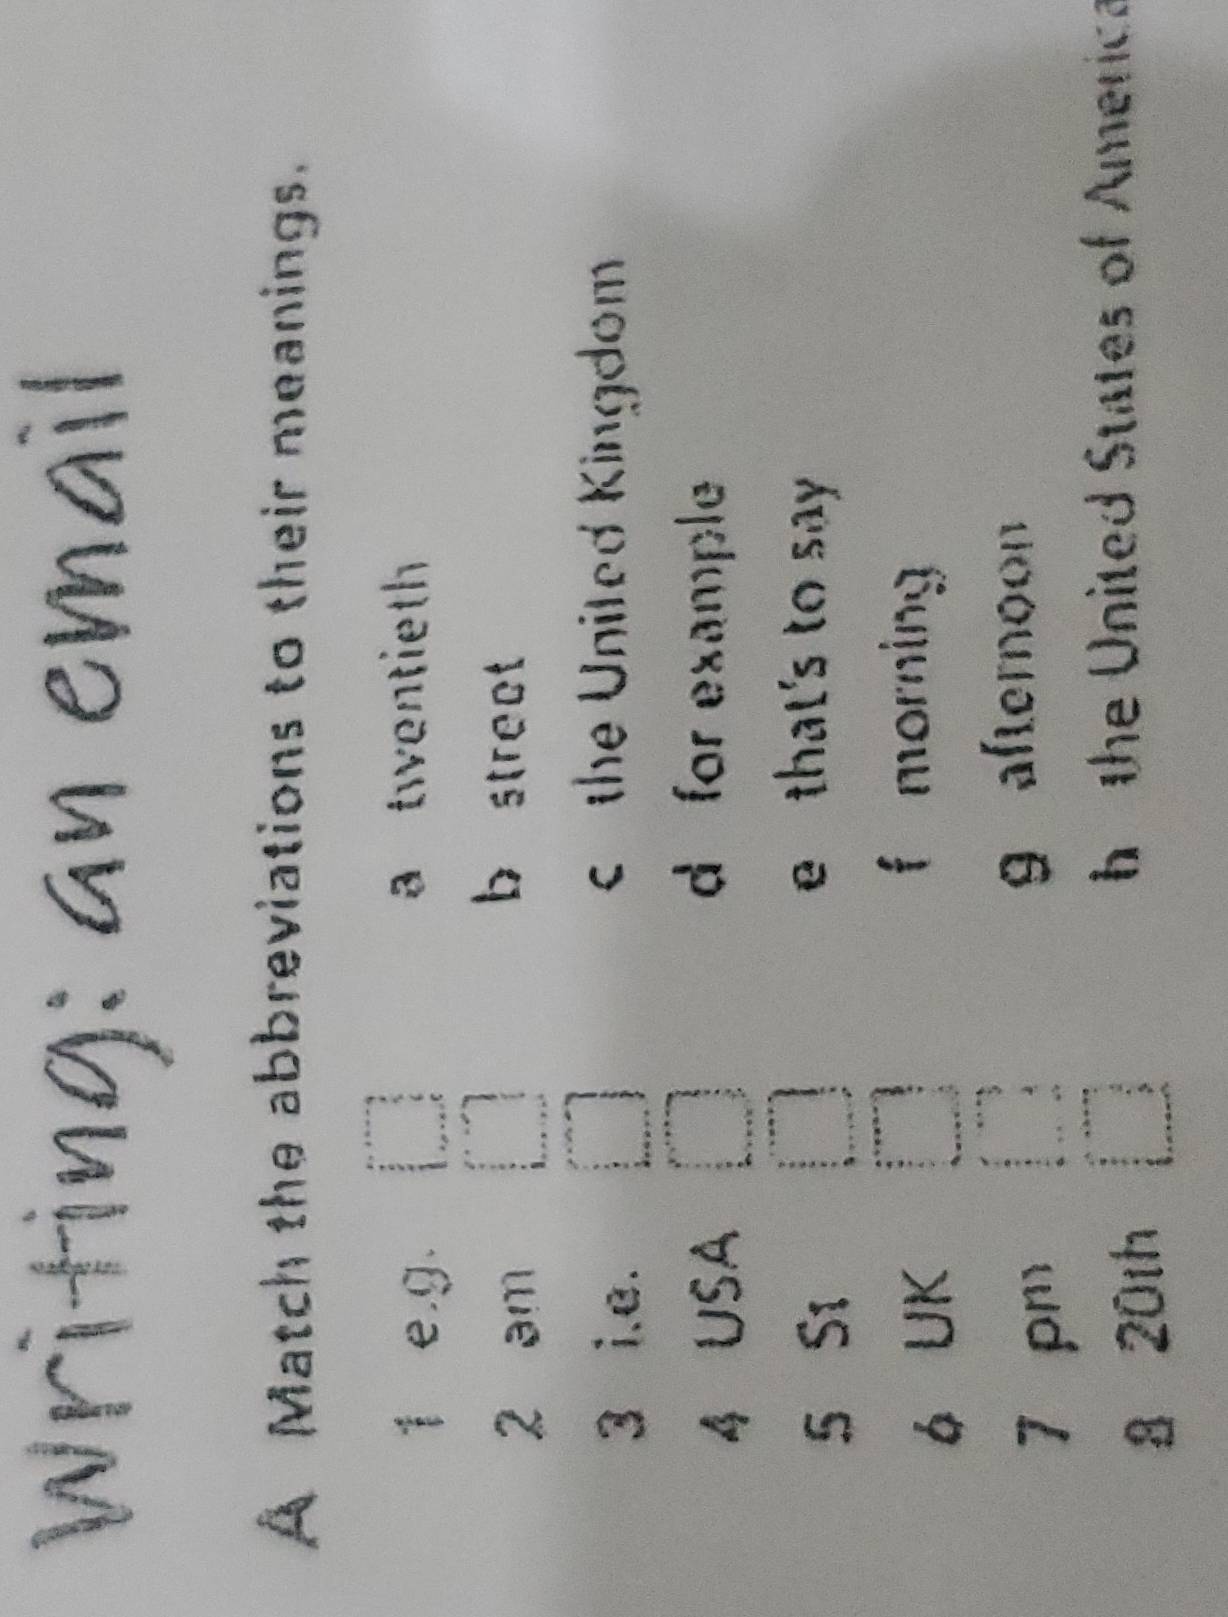 Writing: an email
A Match the abbreviations to their meanings.
1 e.g. a twentieth
2 am b street
3 i.e. c the United Kingdom
4 USA d for example
5 St e that's to say
6 UK f morning
7 pm g afternoon
8 20th h the United States of America